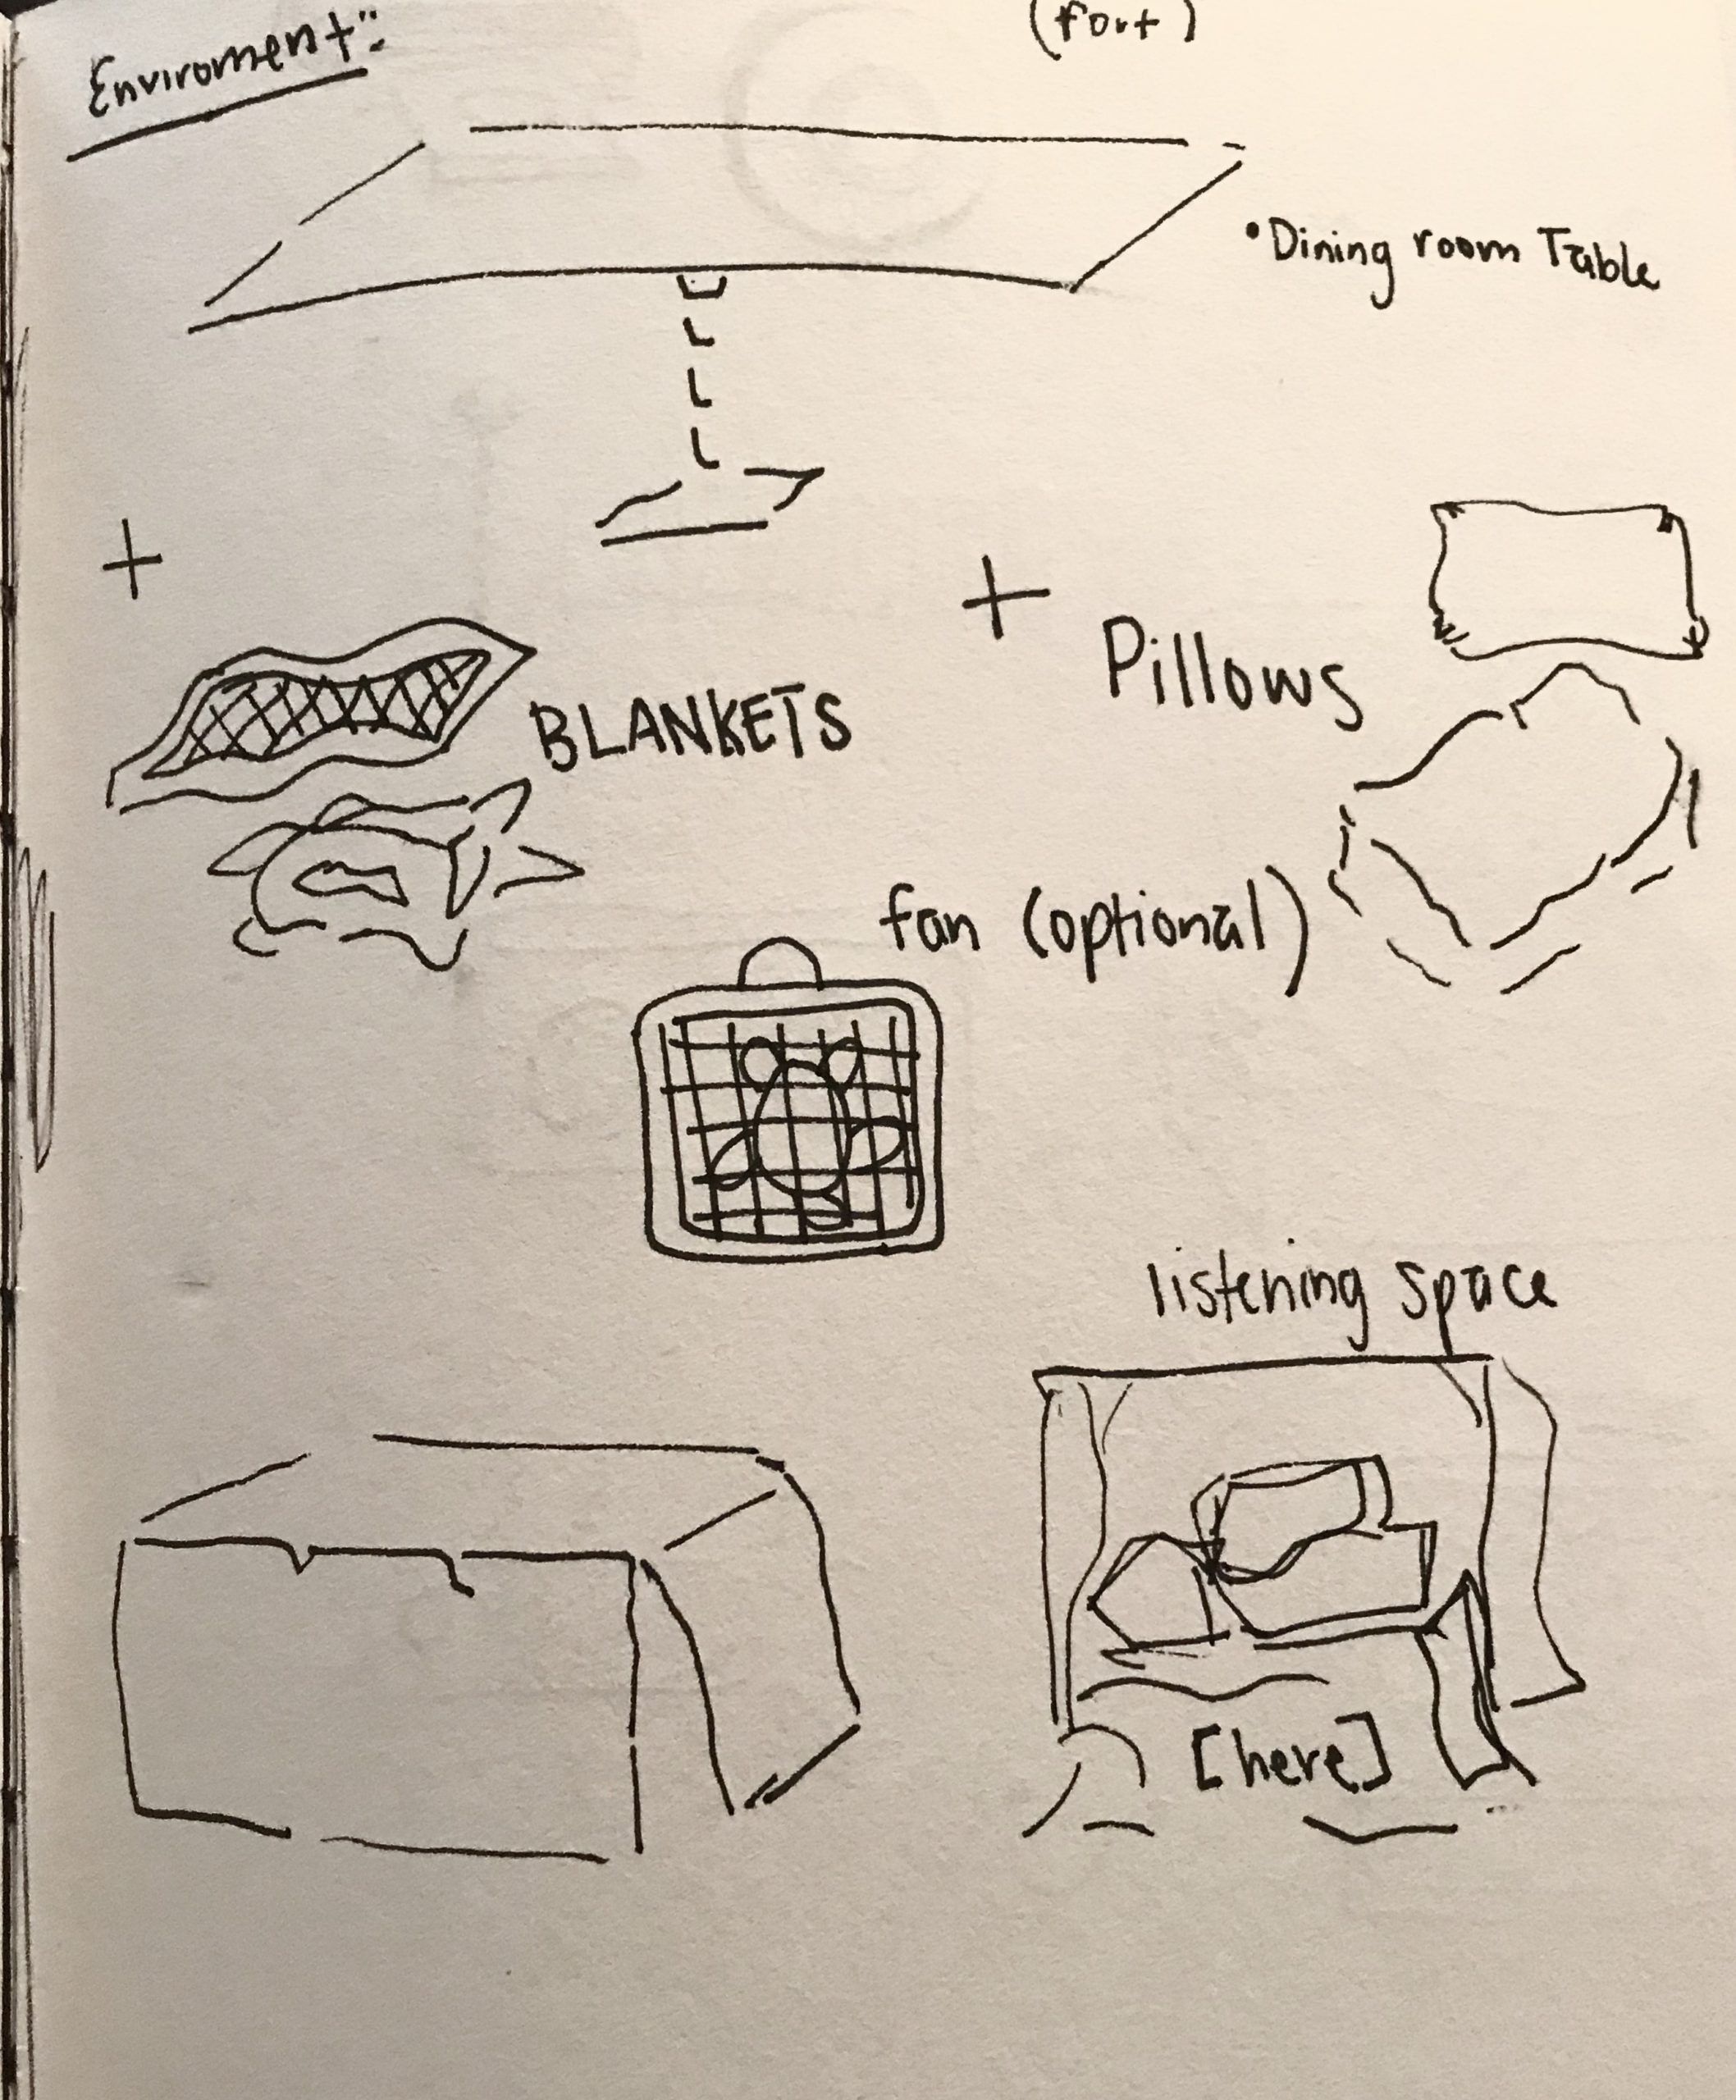 Enviroment:
(fort)
•Dining room Table
+
+
BLANKETS
Pillows
fan (optional)
listening space
[here]